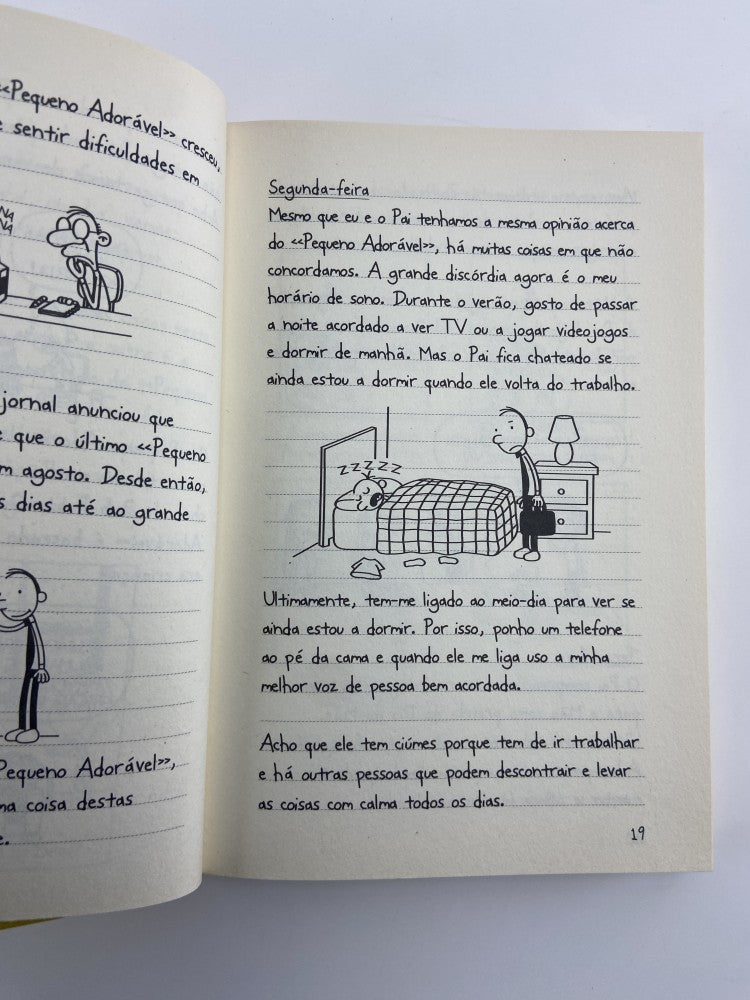 «Pequeno Adorável» cresceu,
sentir dificuldades em
NA
NA
jornal anunciou que
que o último «Pequeno
agosto. Desde então,
dias até ao grande
Pequeno Adorável»,
coisa destas
Segunda-feira
Mesmo que eu e o Pai tenhamos a mesma opinião acerca
do «Pequeno Adorável», há muitas coisas em que não
concordamos. A grande discórdia agora é o meu
horário de sono. Durante o verão, gosto de passar
a noite acordado a ver TV ou a jogar videojogos
e dormir de manhã. Mas o Pai fica chateado se
ainda estou a dormir quando ele volta do trabalho.
ZZZZZ
Ultimamente, tem-me ligado ao meio-dia para ver se
ainda estou a dormir. Por isso, ponho um telefone
ao pé da cama e quando ele me liga uso a minha
melhor voz de pessoa bem acordada.
Acho que ele tem ciúmes porque tem de ir trabalhar
e há outras pessoas que podem descontrair e levar
as coisas com calma todos os dias.
19